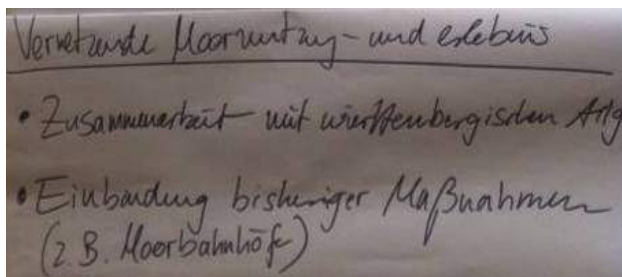 Vernetzende Moornutzung- und erlebnis
• Zusammenarbeit mit württembergischen
• Einbindung bisheriger Maßnahmen
(z.B. Moorbahnhöfe)